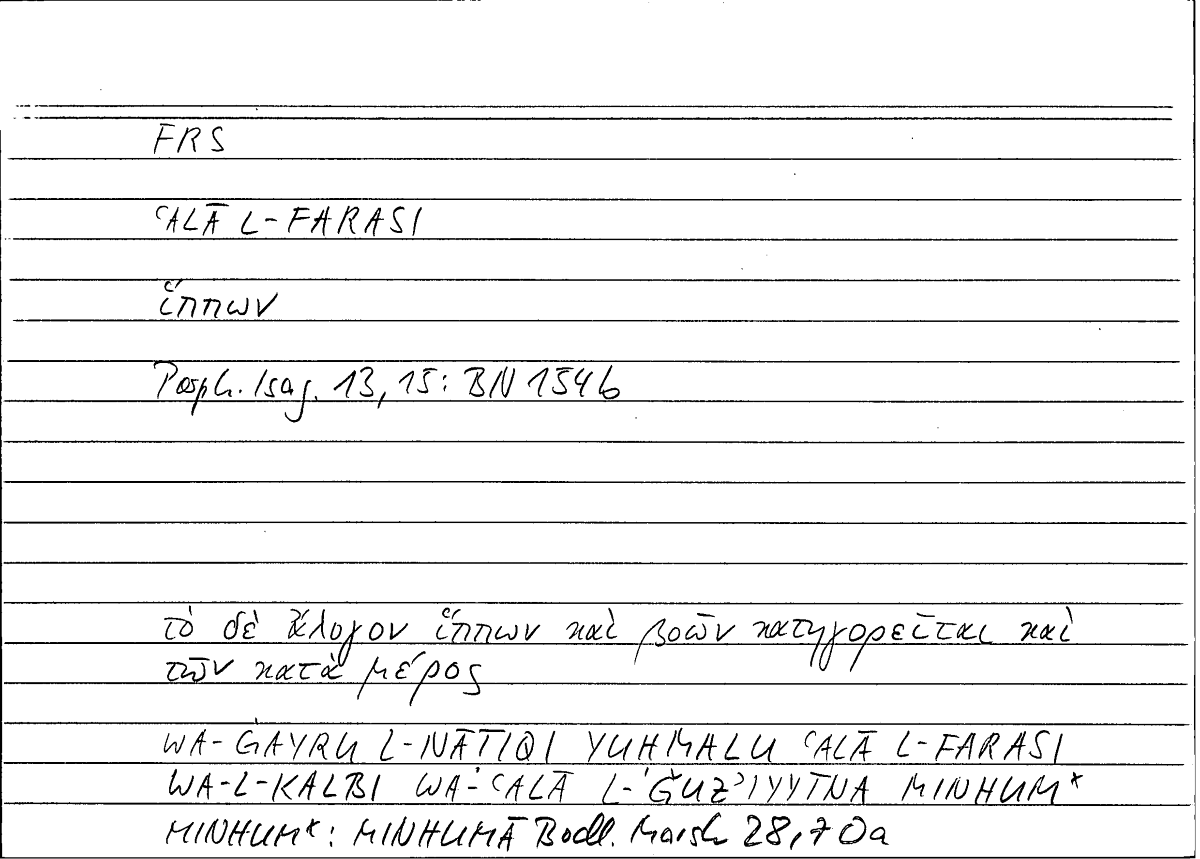 FRS
ʿALĀ L-FARASI
ἵππων
Porph. Isag. 13, 15: BN 154b
τὸ δὲ ἄλογον ἵππων καὶ βοῶν κατηγορεῖται καὶ
τῶν κατὰ μέρος
WA-ĠAYRU L-NĀTIQI YUHMALU ʿALĀ L-FARASI
WA-L-KALBI WA-ʿALĀ L-ǦUZʾIYYĪNA MINHUM*
MINHUM*: MINHUMĀ Bodl. Marsh 28, 70a